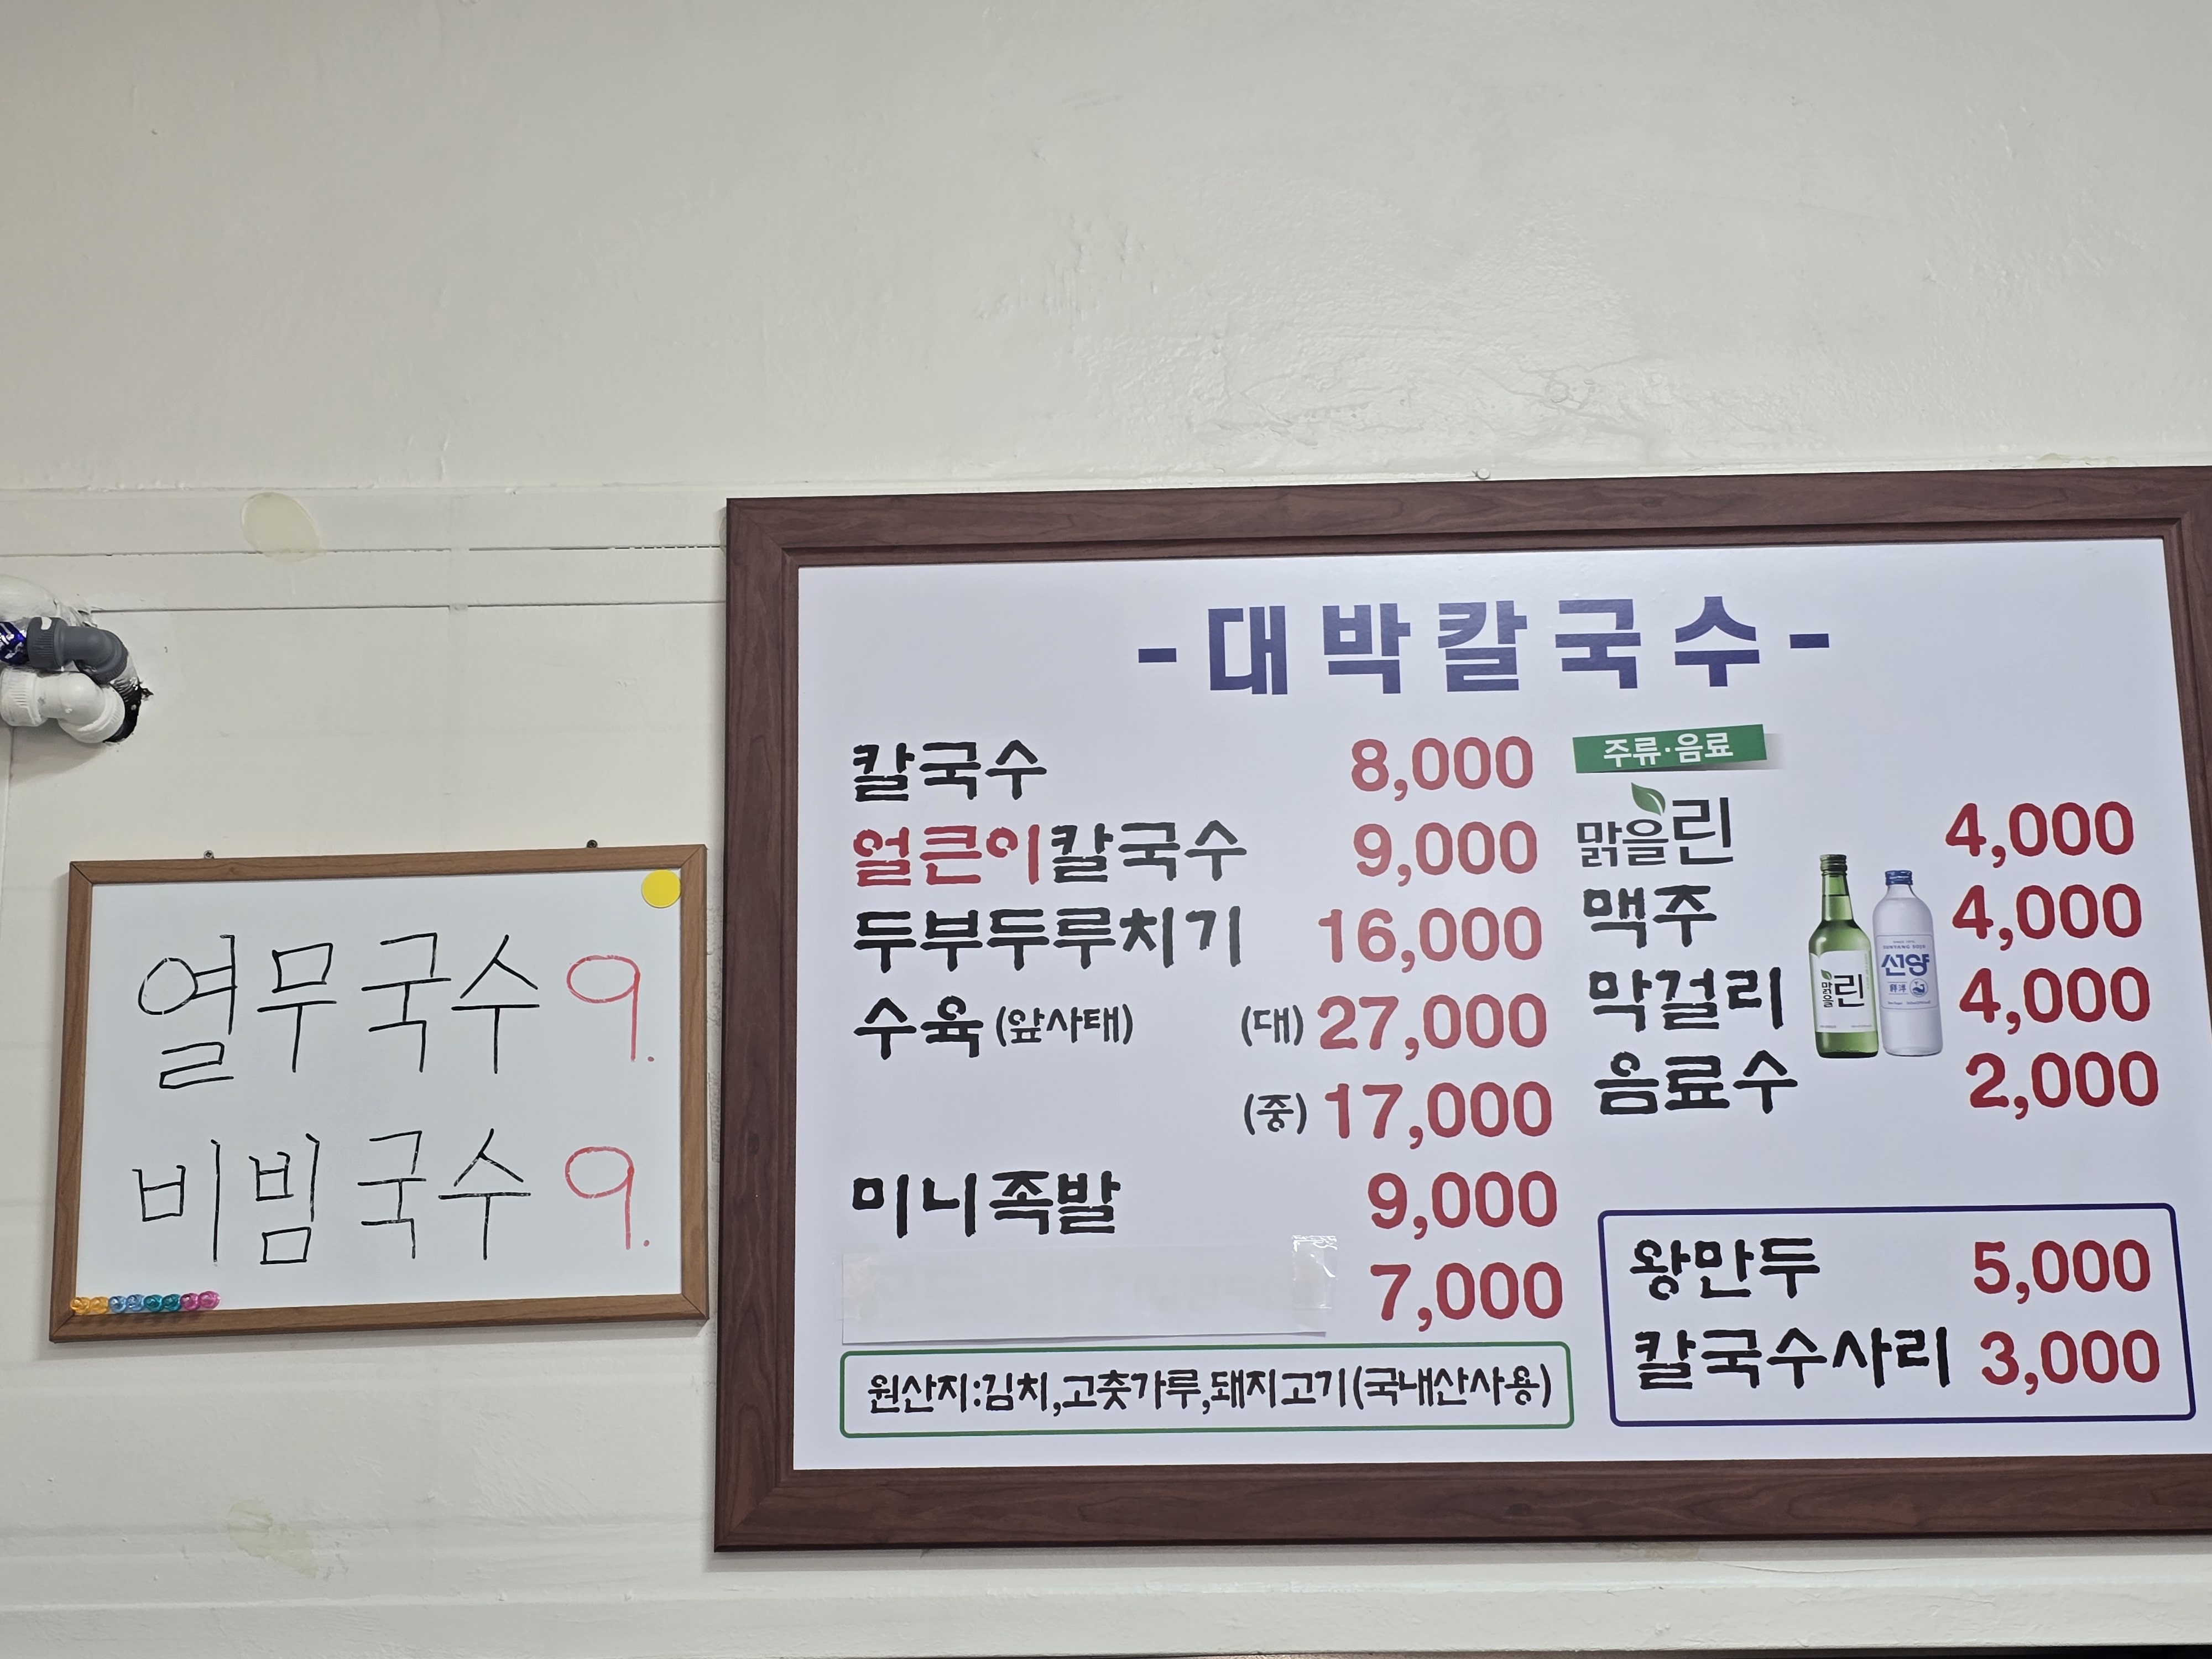 열무국수 9.
비빔국수 9.
-대박칼국수-
칼국수 8,000
얼큰이칼국수 9,000
두부두루치기 16,000
수육(앞사태) (대) 27,000
(중) 17,000
미니족발 9,000
7,000
원산지:김치,고춧가루,돼지고기(국내산사용)
주류·음료
맑을린 4,000
맥주 4,000
막걸리 4,000
음료수 2,000
맑을린
선양
왕만두 5,000
칼국수사리 3,000